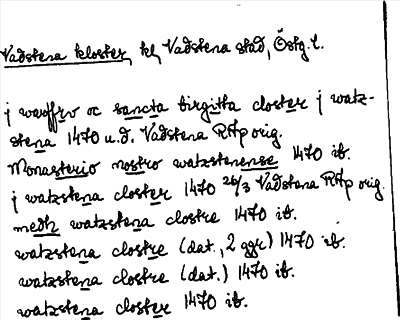 Vadstena kloster, kl, Vadstena stad, Östg.l.
j waffrv oc sancta birgitta closter j watz-
stena 1470 u.d. Vadstena RAp orig.
Monasterio nostro watzstenense 1470 ib.
j watzstena closter 1470 26/3 Vadstena RAp orig.
medh watzstena clostre 1470 ib.
watzstena clostre (dat., 2 ggr) 1470 ib.
watzstena clostre (dat.) 1470 ib.
watzstena closter 1470 ib.